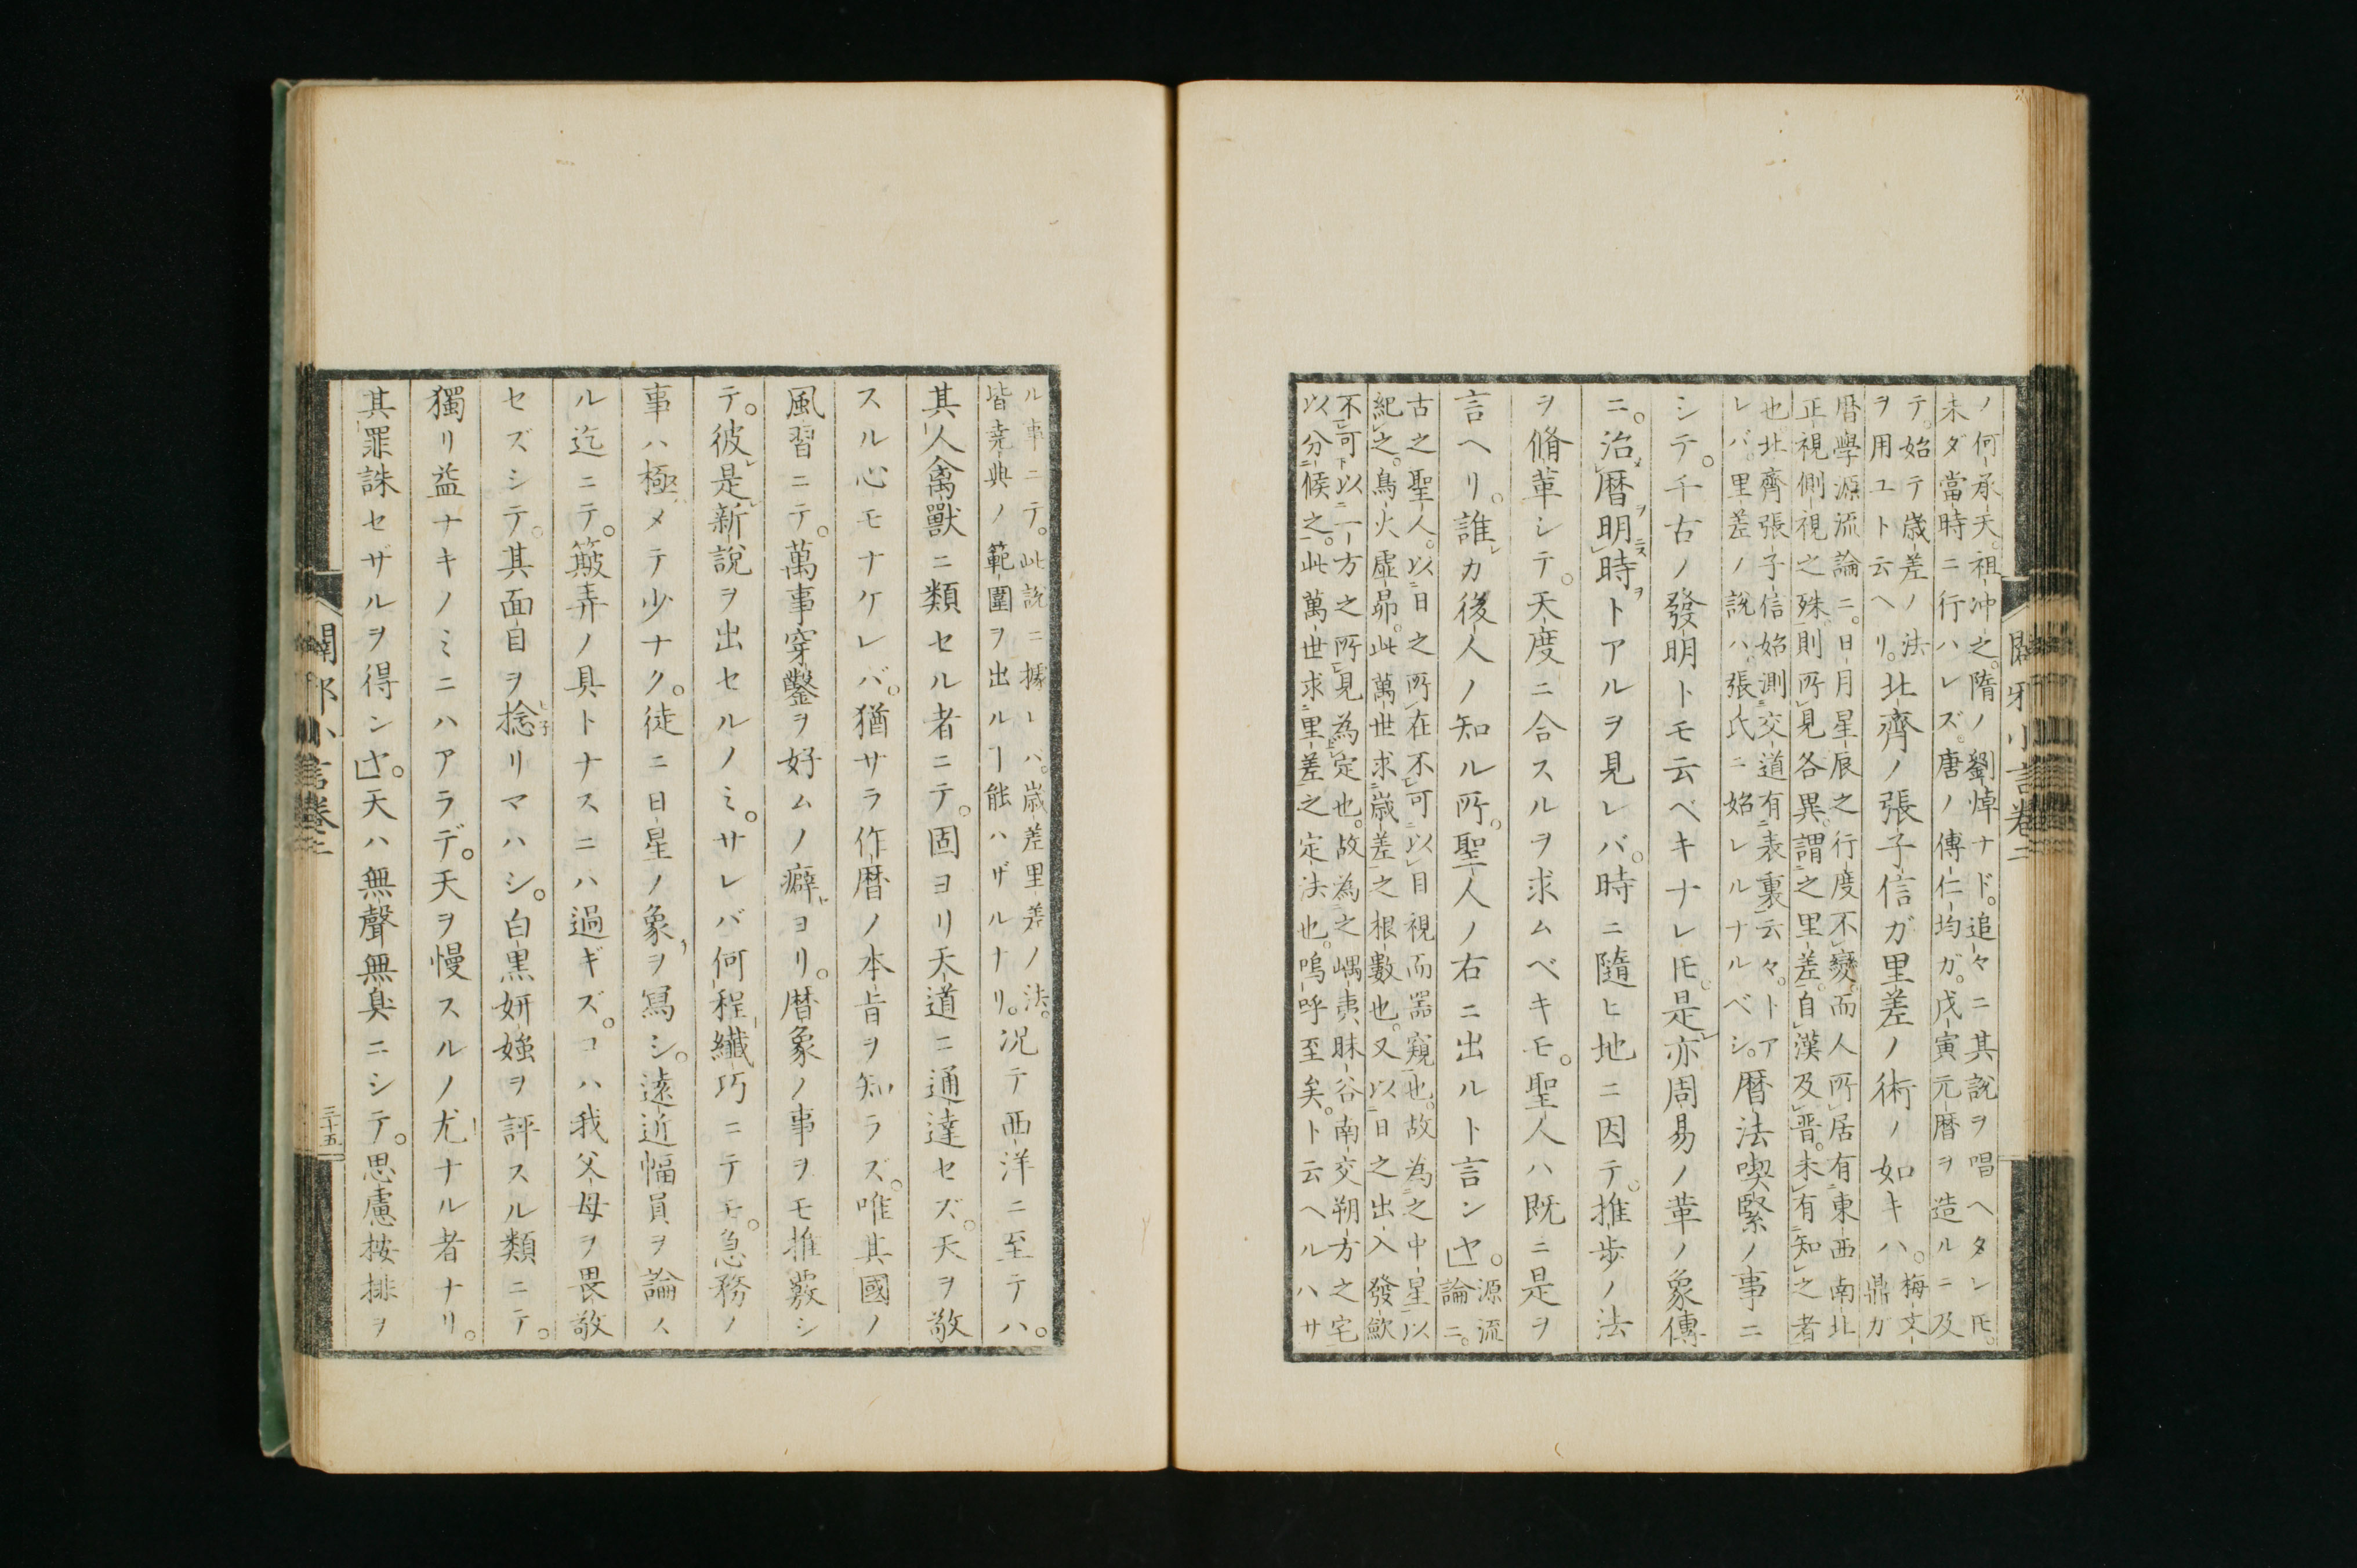 ノ何承天。祖沖之。隋ノ劉焯ナド。追々ニ其説ヲ唱ヘタレ𪜈。
未ダ當時ニ行ハレズ。唐ノ傳仁均ガ。戊寅元暦ヲ造ルニ及
テ。始テ歳差ノ法
ヲ用ユト云ヘリ。
北齊ノ張子信ガ里差ノ術ノ如キハ。
梅文
鼎ガ
暦學源流論ニ。日月星辰之行度不變。而人所居有東西南北
正視側視之殊則所見各異。謂之里差。自漢及晋。未有知之者
也北齊張子信始測交道有表裏云々。トア
レバ。里差ノ説ハ。張氏ニ始レルナルベシ。
暦法喫緊ノ事ニ
シテ。千古ノ發明トモ云ベキナレ𪜈。是亦周易ノ革ノ象傳
ニ。治暦明時トアルヲ見レバ。時ニ隨ヒ地ニ因テ。推歩ノ法
ヲ脩革シテ。天度ニ合スルヲ求ムベキモ。聖人ハ既ニ是ヲ
言ヘリ。誰カ後人ノ知ル所。聖人ノ右ニ出ルト言ンヤ。
源流
論ニ。
古之聖人。以日之所在不可以目視而器窺也。故為之中星以
紀之。鳥火虚昴。此萬世求歳差之根數也。又以日之出入發歛
不可以一方之所見為定也。故為之嵎夷昧谷南交朔方之宅
以分候之。此萬世求里差之定法也。嗚呼至矣。ト云ヘルハサ
閑邪小言卷二
ル事ニテ。此説ニ據レバ。歳差里差ノ法。
皆堯典ノ範圍ヲ出ルヿ能ハザルナリ。
况テ西洋ニ至テハ。
其人禽獸ニ類セル者ニテ。固ヨリ天道ニ通達セズ。天ヲ敬
スル心モナケレバ。猶サラ作暦ノ本旨ヲ知ラズ。唯其國ノ
風習ニテ。萬事穿鑿ヲ好ムノ癖ヨリ。暦象ノ事ヲモ推覈シ
テ。彼是新説ヲ出セルノミ。サレバ何程纎巧ニテモ。急務ノ
事ハ極メテ少ナク。徒ニ日星ノ象ヲ冩シ。遠近幅員ヲ論ス
ル迄ニテ。簸弄ノ具トナスニハ過ギズ。コハ我父母ヲ畏敬
セズシテ。其面目ヲ捻リマハシ。白黒妍媸ヲ評スル類ニテ。
獨リ益ナキノミニハアラデ。天ヲ慢スルノ尤ナル者ナリ。
其罪誅セザルヲ得ンヤ。天ハ無聲無臭ニシテ。思慮按排ヲ
閑邪小言卷二
三十五